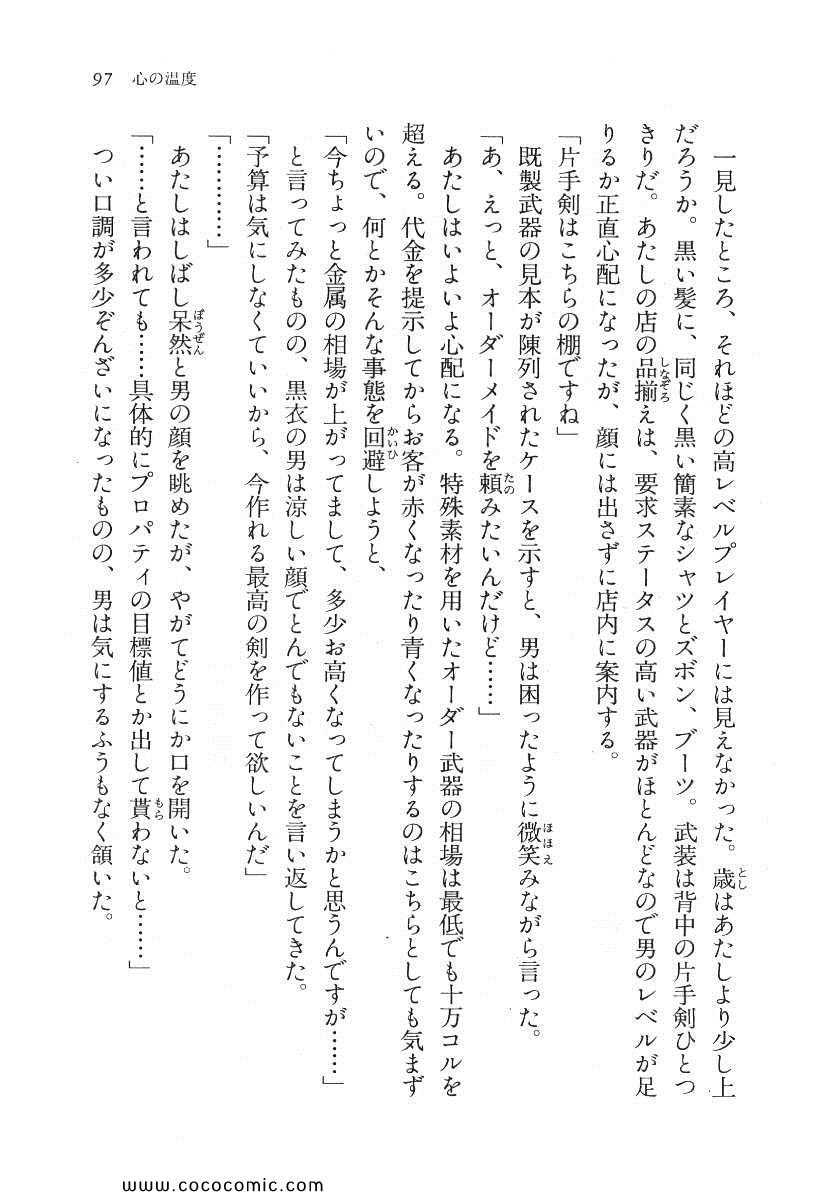 97 心の温度
一見したところ、それほどの高レベルプレイヤーには見えなかった。歳はあたしより少し上
だろうか。黒い髪に、同じく黒い簡素なシャツとズボン、ブーツ。武装は背中の片手剣ひとつ
きりだ。あたしの店の品揃えは、要求ステータスの高い武器がほとんどなので男のレベルが足
りるか正直心配になったが、顔には出さずに店内に案内する。
「片手剣はこちらの棚ですね」
既製武器の見本が陳列されたケースを示すと、男は困ったように微笑みながら言った。
「あ、えっと、オーダーメイドを頼みたいんだけど……」
あたしはいよいよ心配になる。特殊素材を用いたオーダー武器の相場は最低でも十万コルを
超える。代金を提示してからお客が赤くなったり青くなったりするのはこちらとしても気まず
いので、何とかそんな事態を回避しようと、
「今ちょっと金属の相場が上がってまして、多少お高くなってしまうかと思うんですが……」
と言ってみたものの、黒衣の男は涼しい顔でとんでもないことを言い返してきた。
「予算は気にしなくていいから、今作れる最高の剣を作って欲しいんだ」
「…………」
あたしはしばし呆然と男の顔を眺めたが、やがてどうにか口を開いた。
「……と言われても……具体的にプロパティの目標値とか出して貰わないと……」
つい口調が多少ぞんざいになったものの、男は気にするふうもなく頷いた。
www.cococomic.com